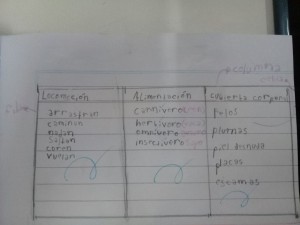 columna
Locomoción
arrastran
caminan
nadan
saltan
corren
vuelan
Alimentación
carnívoro
herbívoro
omnívoro
insectívoro
cubierta corporal
pelos
plumas
piel desnuda
placas
escamas